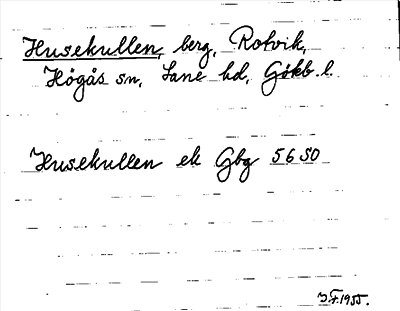 Husekullen, berg, Rotvik,
Högås sn, Lane hd, Gökb. l.
Husekullen ek Gbg 5650
J.F. 1955.